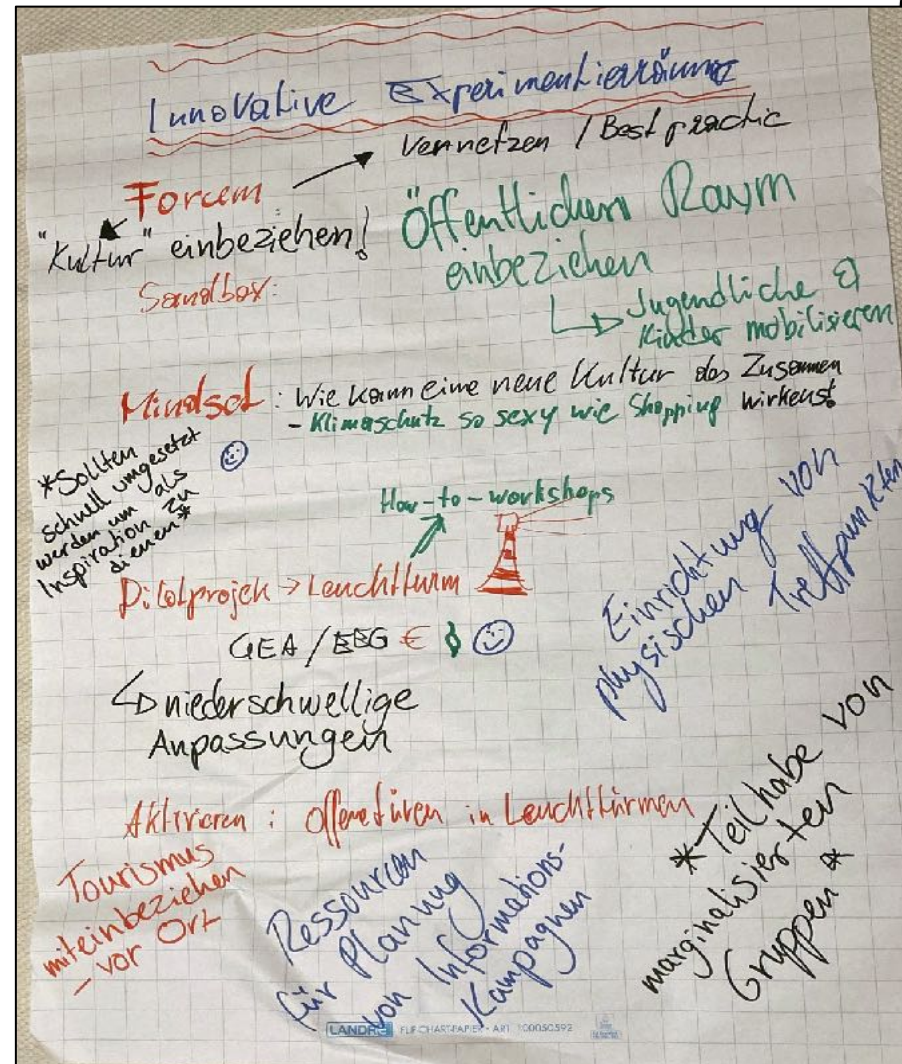 Innovative Experimentierräume
Vernetzen / Best practic
Forcem
"Kultur" einbeziehen!
Öffentlichen Raum
einbeziehen
Sandbox:
Jugendliche &
Kinder mobilisieren
Mindset: Wie kann eine neue Kultur des Zusammen
wirkens?
- Klimaschutz so sexy wie Shopping
*Sollten
schnell umgesetzt
werden um als
Inspiration zu
dienen*
How-to-workshops
Pilotprojek → Leuchtturm
GEA / EEG €
niederschwellige
Anpassungen
Einrichtung von
physischen Treffpunkten
Aktivieren: Offene türen in Leuchttürmen
*Teilhabe von
marginalisierten
Gruppen*
Tourismus
miteinbeziehen
- vor Ort
Ressourcen
für Planung
von Informations-
Kampagnen
LANDRÉ FLIP-CHART-PAPIER · ART. 100050592